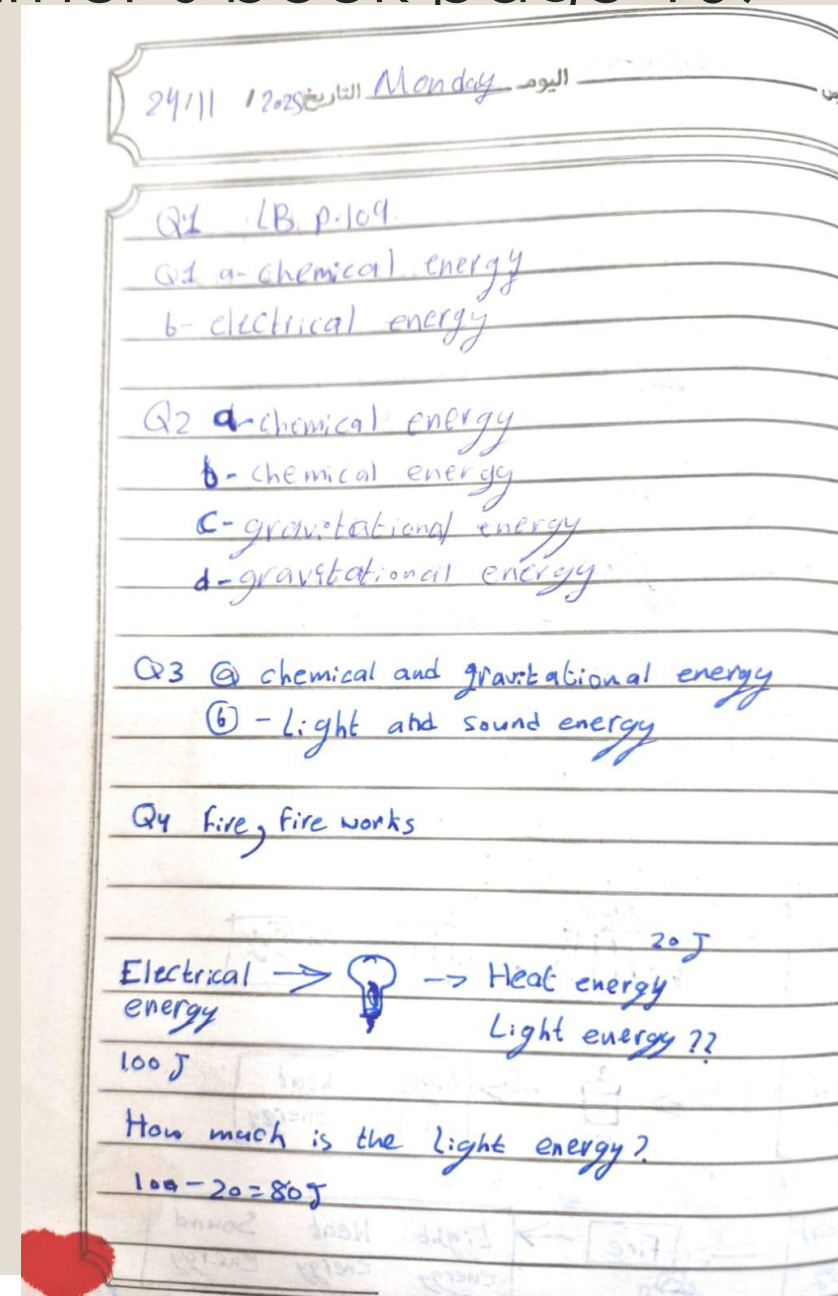 24/11 / 2025 التاريخ Monday اليوم
Q1 LB p.109
Q1 a- chemical energy
b- electrical energy
Q2 a- chemical energy
b- chemical energy
c- gravitational energy
d- gravitational energy
Q3 ⓐ chemical and gravitational energy
ⓑ - Light and sound energy
Q4 fire, fire works
20 J
Electrical → → Heat energy
energy
Light energy ??
100 J
How much is the light energy?
100 - 20 = 80 J